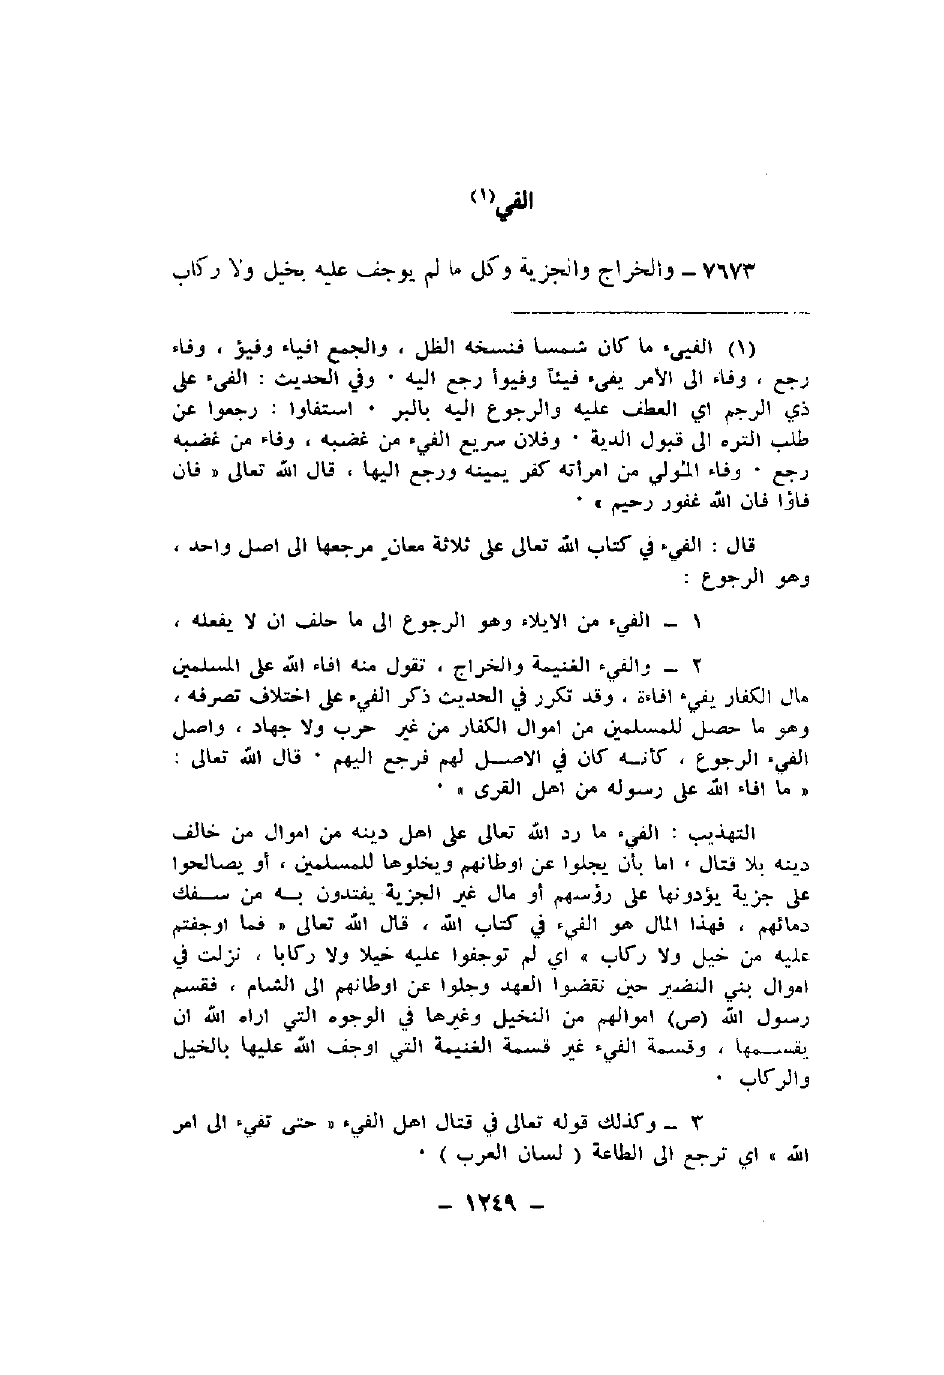 الفي(١)
٧٦٧٣ – والخراج والجزية وكل ما لم يوجف عليه بخيل ولا ركاب
(١) الفييء ما كان شمسا فنسخه الظل ، والجمع افياء وفيؤ ، وفاء
رجع ، وفاء الى الأمر يفيء فيئاً وفيوأ رجع اليه · وفي الحديث : الفيء على
ذي الرجم اي العطف عليه والرجوع اليه بالبر · استفاوا : رجعوا عن
طلب التره الى قبول الدية · وفلان سريع الفيء من غضبه ، وفاء من غضبه
رجع · وفاء المولي من امرأته كفر يمينه ورجع اليها ، قال الله تعالى « فان
فاؤا فان الله غفور رحيم » ·
قال : الفيء في كتاب الله تعالى على ثلاثة معانٍ مرجعها الى اصل واحد ،
وهو الرجوع :
١ – الفيء من الايلاء وهو الرجوع الى ما حلف ان لا يفعله ،
٢ – والفيء الغنيمة والخراج ، تقول منه افاء الله على المسلمين
مال الكفار يفيء افاءة ، وقد تكرر في الحديث ذكر الفيء على اختلاف تصرفه ،
وهو ما حصل للمسلمين من اموال الكفار من غير حرب ولا جهاد ، واصل
الفيء الرجوع ، كأنه كان في الاصل لهم فرجع اليهم · قال الله تعالى :
« ما افاء الله على رسوله من اهل القرى » ·
التهذيب : الفيء ما رد الله تعالى على اهل دينه من اموال من خالف
دينه بلا قتال ، اما بأن يجلوا عن اوطانهم ويخلوها للمسلمين ، أو يصالحوا
على جزية يؤدونها على رؤسهم أو مال غير الجزية يفتدون به من سفك
دمائهم ، فهذا المال هو الفيء في كتاب الله ، قال الله تعالى « فما اوجفتم
عليه من خيل ولا ركاب » اي لم توجفوا عليه خيلا ولا ركابا ، نزلت في
اموال بني النضير حين نقضوا العهد وجلوا عن اوطانهم الى الشام ، فقسم
رسول الله (ص) اموالهم من النخيل وغيرها في الوجوه التي اراه الله ان
يقسمها ، وقسمة الفيء غير قسمة الغنيمة التي اوجف الله عليها بالخيل
والركاب ·
٣ – وكذلك قوله تعالى في قتال اهل الفيء « حتى تفيء الى امر
الله » اي ترجع الى الطاعة ( لسان العرب ) ·
– ١٢٤٩ –